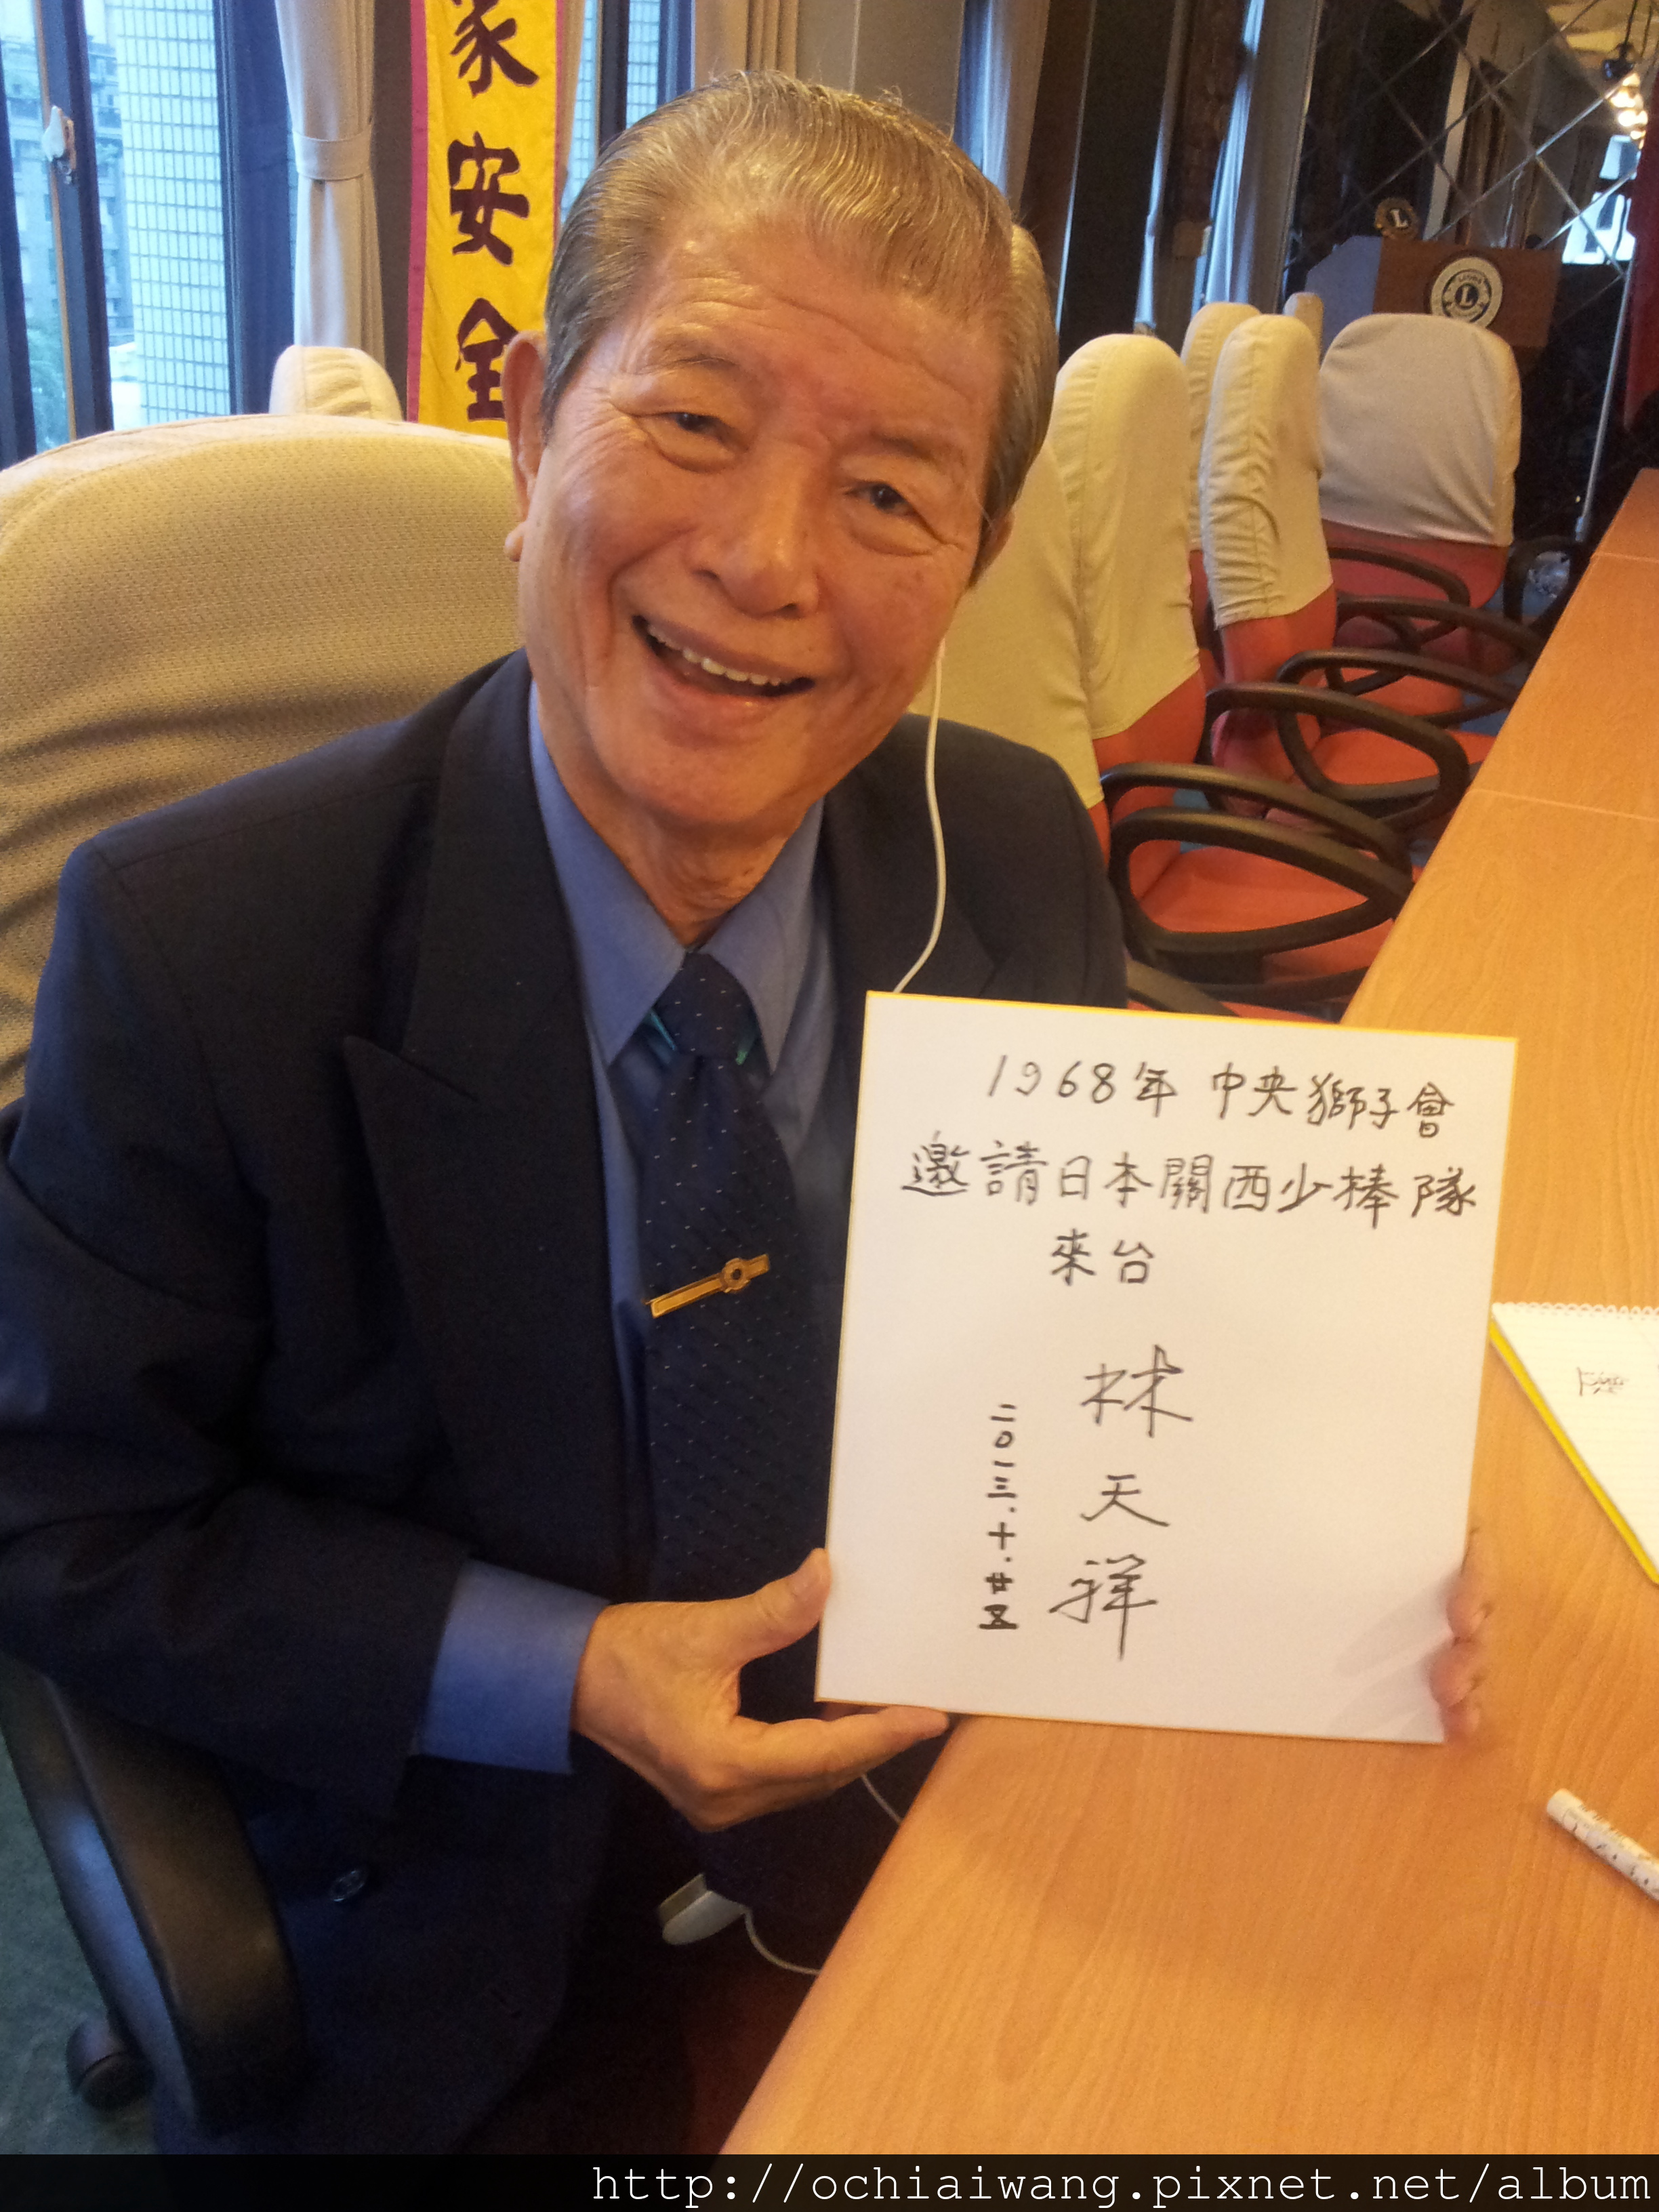 家安全
L
L
1968年 中央獅子會
邀請日本關西少棒隊
來台
林天祥
二〇一三.十.廿五
邀
http://ochiaiwang.pixnet.net/album